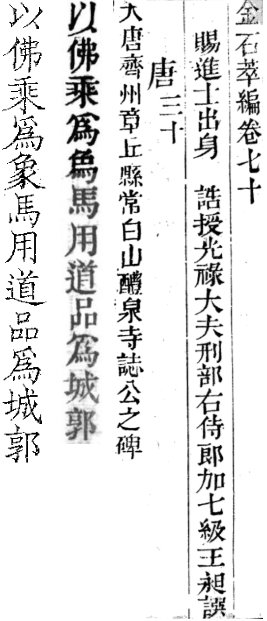 金石萃編卷七十
賜進士出身　誥授光祿大夫刑部右侍郎加七級王昶譔
唐三十
大唐齊州章丘縣常白山醴泉寺誌公之碑
以佛乘爲象馬用道品爲城郭
以佛乘爲象馬用道品爲城郭